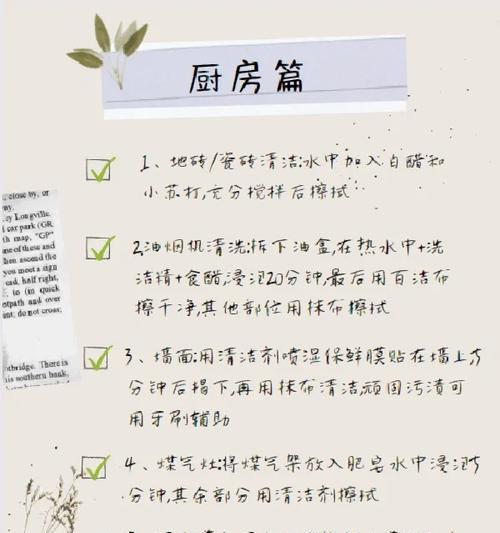 厨房篇
1、地砖/瓷砖清洁:水中加入白醋和
小苏打,充分搅拌后擦拭
2.油烟机清洗:拆下油盒,在热水中+洗
洁精+食醋,浸泡20分钟,最后用百洁布
擦干净,其他部位用抹布擦拭
3、墙面:用清洁剂喷湿保鲜膜贴在墙上5
分钟后揭下,再用抹布清洁,顽固污渍可
用牙刷辅助
4、煤气灶:将煤气架放入肥皂水中浸泡5
分钟,其余部分用清洁剂擦拭
close by, or
ey Longville.
car park (GR
th map, "GP"
ne of these and
hen ascend the
you meet a sign
ead, half right,
to (in quick
otpath and over
int; do not cross;
tbridge. There is
is southern bank,